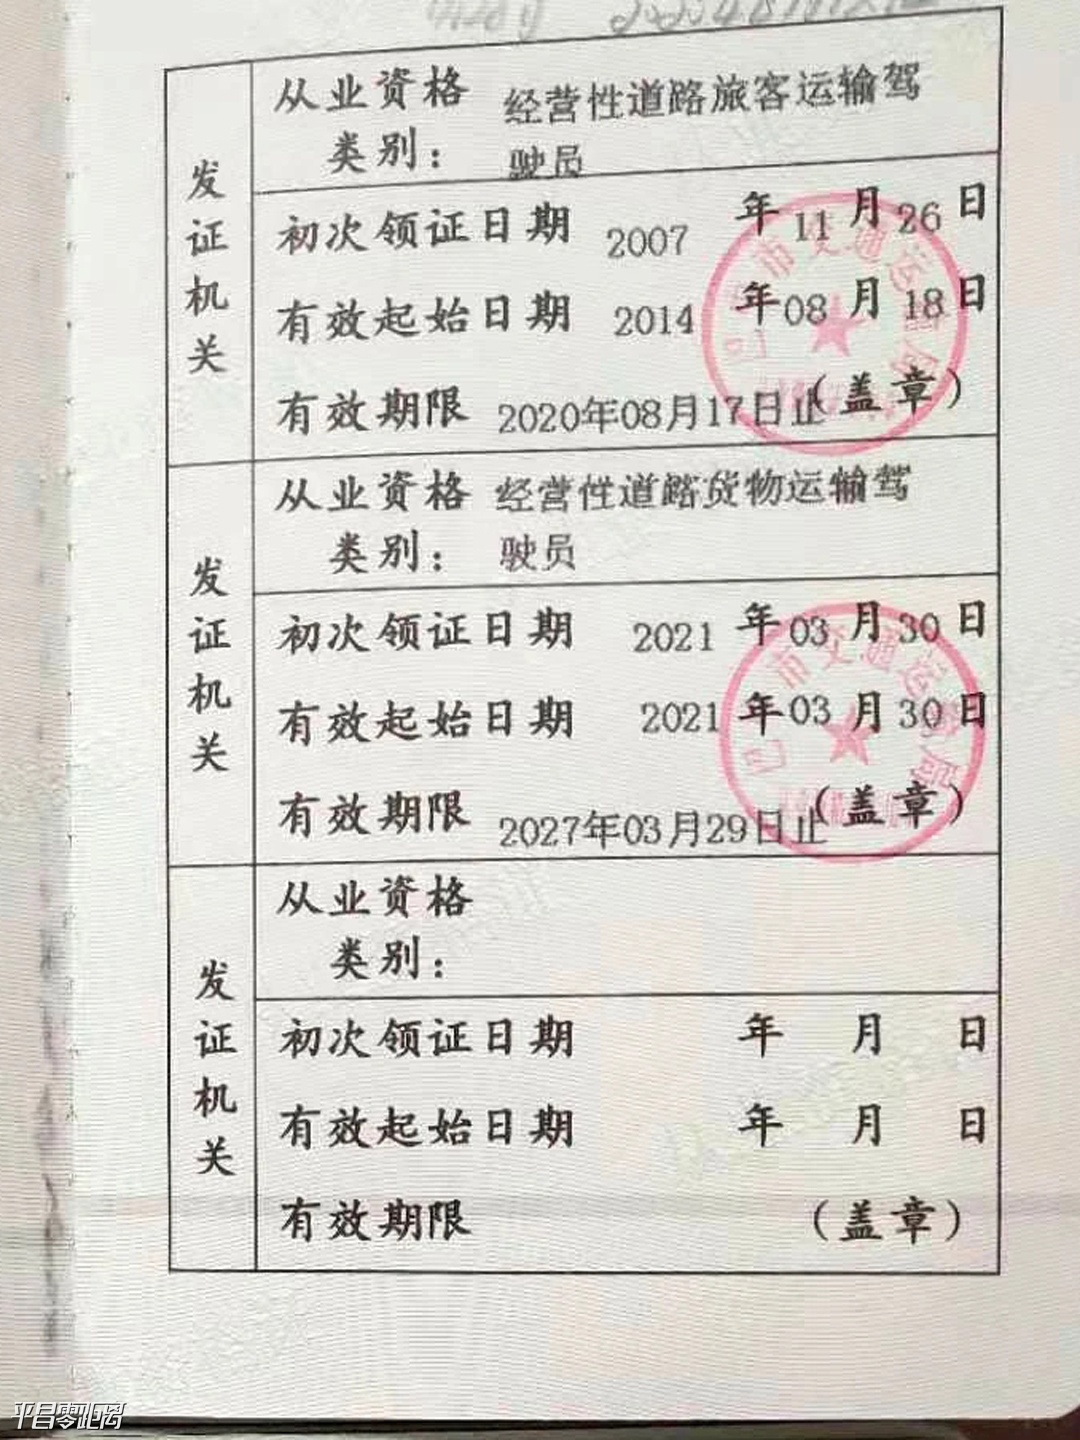 从业资格 经营性道路旅客运输驾
类别： 驶员
初次领证日期 2007 年 11 月 26 日
有效起始日期 2014 年 08 月 18 日
有效期限 2020年08月17日止 （盖章）
发证机关
从业资格 经营性道路货物运输驾
类别： 驶员
初次领证日期 2021 年 03 月 30 日
有效起始日期 2021 年 03 月 30 日
有效期限 2027年03月29日止 （盖章）
发证机关
从业资格
类别：
初次领证日期 年 月 日
有效起始日期 年 月 日
有效期限 （盖章）
发证机关
市交通运
局
市交通运
局
平昌零距离